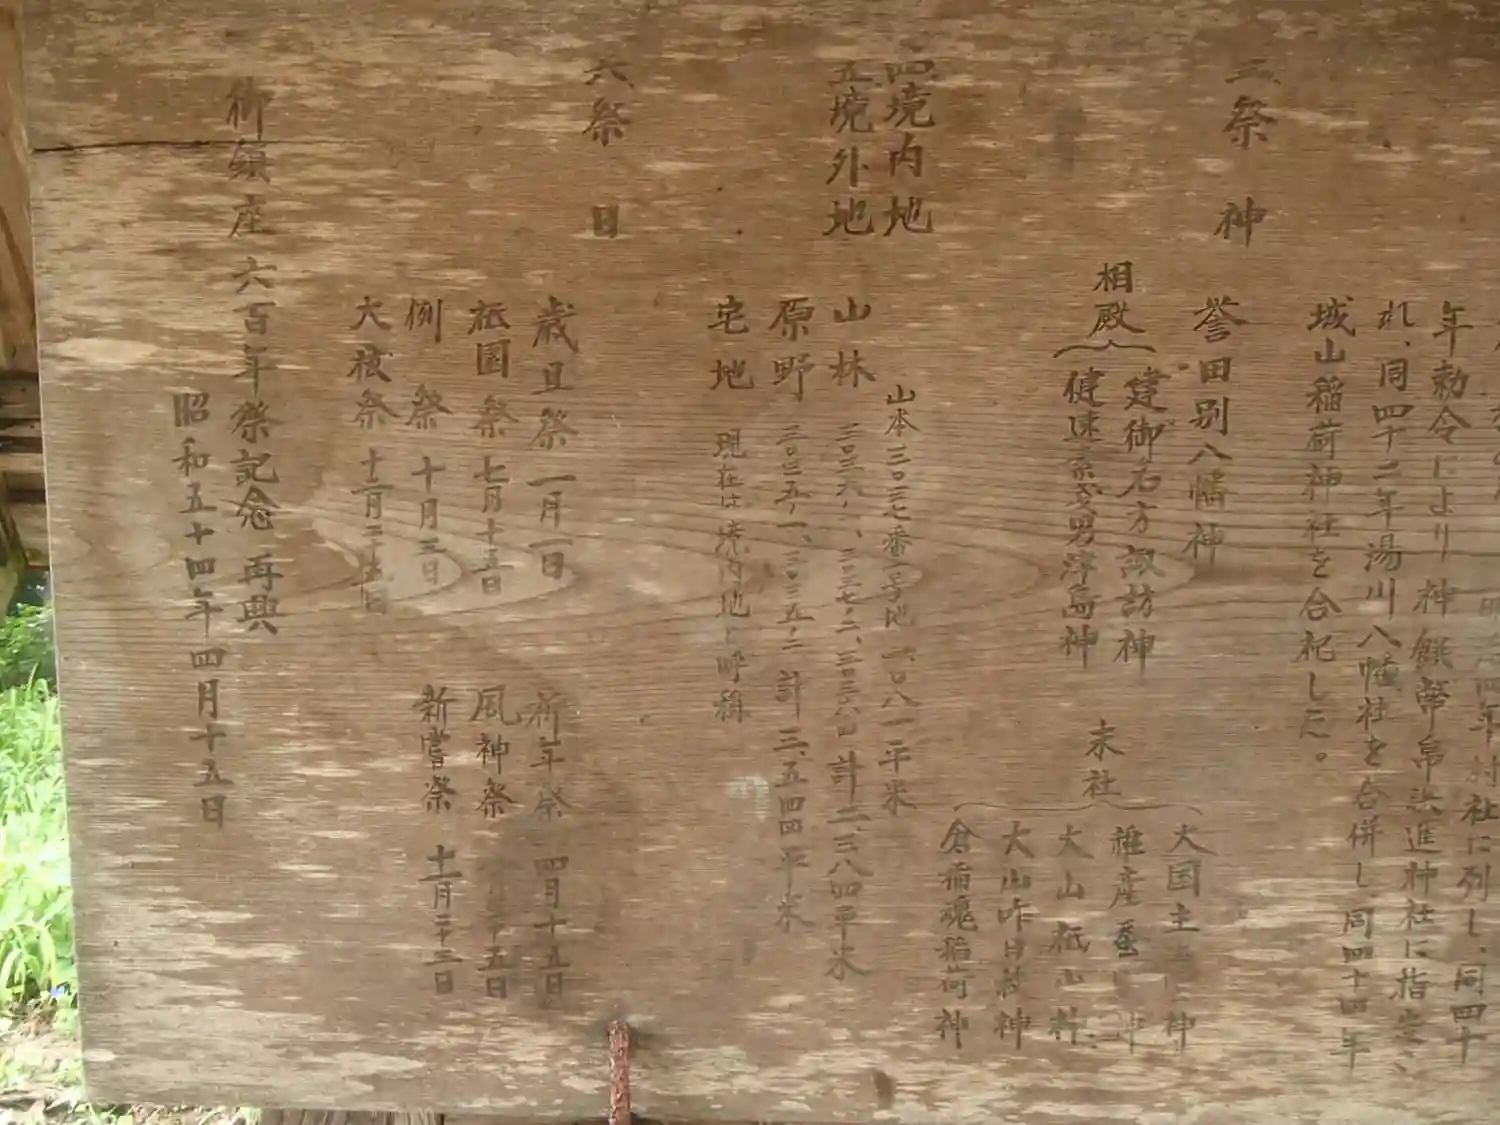 明治四年村社に列し、同四十
年勅令により神饌幣帛供進神社に指定
れ、同四十二年湯川八幡社を合併し同四十四年
城山稲荷神社を合祀した。
三祭神
誉田別八幡神
相殿
建御名方諏訪神
健速素戔男津島神
末社
大国主 神
雑産蚕 神
大山祇山神
大山咋日枝神
倉稲魂稲荷神
四境内地
山本三〇三七番一号地 八一平米
五境外地
山林 計二、三八四平米
原野 三〇三五ノ一、三〇三五ノ二 計三、五四四平米
宅地 現在は境内地と呼称
六祭日
歳旦祭 一月一日
祈年祭 四月十五日
祇園祭 七月十五日
風神祭 五日
例祭 十月三日
新嘗祭 十一月二十三日
大祓祭 十二月三十日
御鎮座六百年祭記念 再興
昭和五十四年四月十五日